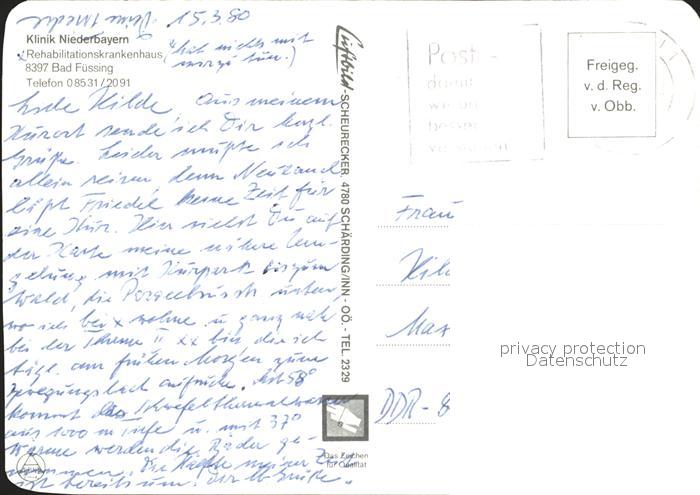 Deine Friedel 15.3.80
Klinik Niederbayern
x Rehabilitationskrankenhaus (hat nichts mit
8397 Bad Füssing mir zu tun.)
Telefon 08531/2091
Liebe Hilde, aus meinem
Kurort sende ich Dir herzl.
Grüße. Leider mußte ich
allein reisen denn
läßt Friedel keine Zeit für
eine Kur. Hier siehst Du auf
der Karte meine nähere Um-
gebung mit Kurpark bis zum
Wald, die unten,
wo ich bei x wohne u. ganz nah
bei der Therme II xx bin, die ich
tägl. am frühen Morgen zum
Bewegungsbad aufsuche. Mit 58°
kommt das Schwefelthermalwasser
aus 1000 m Tiefe u. mit 37°
Wärme werden die Bäder ge-
nommen. Die Hälfte meiner Zeit
ist bereits um. Grüße.
Luftbild-SCHEURECKER, 4780 SCHÄRDING/INN - OÖ. - TEL. 2329
Das Zeichen
für Qualität
Post-
Freigeg.
v. d. Reg.
v. Obb.
Frau
Hild
Max
DDR-8
privacy protection
Datenschutz